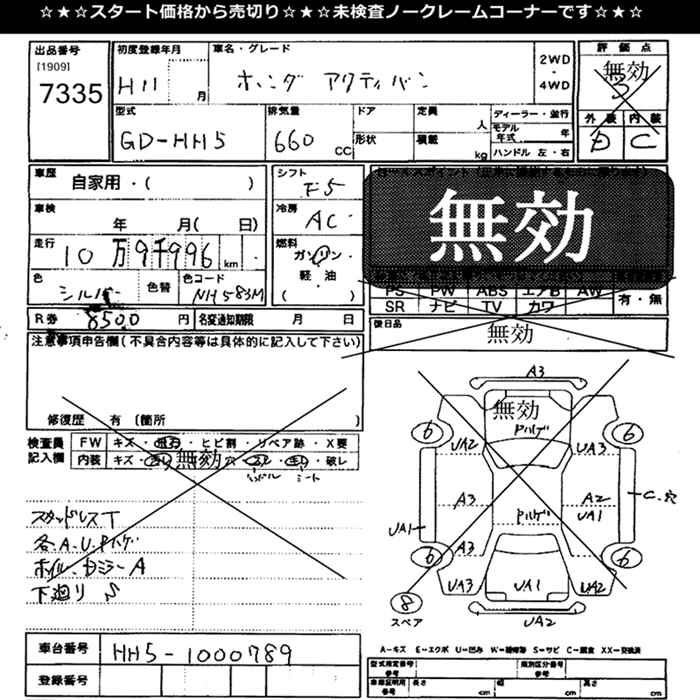 ☆★☆★スタート価格から売切り☆★☆★未検査ノークレームコーナーです☆★☆
出品番号
[1909]
7335
初度登録年月
H11 月
車名・グレード
ホンダ アクティバン
2WD
・
4WD
評価点
無効
外装 内装
D C
型式
GD-HH5
排気量
660 CC
ドア
形状
定員 人
積載 kg
ディーラー・並行
モデル年式 年
ハンドル 左・右
車歴
自家用・( )
シフト
F5
車検
年 月( 日)
冷房
AC
走行
10万9千996 km
燃料
ガソリン
・
軽・油
( )
色
シルバー
色替
色コード
NH583M
無効
PS PW ABS エアB AW
SR ナビ TV カワ
有・無
R券 8500 円
名変通知期限 月 日
後日品
無効
注意事項申告欄(不具合内容等は具体的に記入して下さい)
修復歴 有 (箇所 )
検査員
記入欄
FW キズ・ ・ヒビ割・リペア跡・X要
内装 キズ・ 無効 穴・ ・ ・破レ
ハンドル シート
スタッドレスT
各A.U.Pハゲ
ホイル・ A
下廻り S
A3
無効
Pハゲ
6
6
UA2
UA3
A3
Pハゲ
A2
UA1
C.穴
UA1
A3
6
6
UA3
UA1
UA2
8
スペア
UA2
車台番号
HH5-1000789
登録番号
A-キズ E-エクボ U-凹み W-補修跡 S-サビ C-腐食 XX-交換済
型式指定番号
参考
類別区分番号
参考
車庫証明用
参考
長さ cm
幅 cm
高さ cm